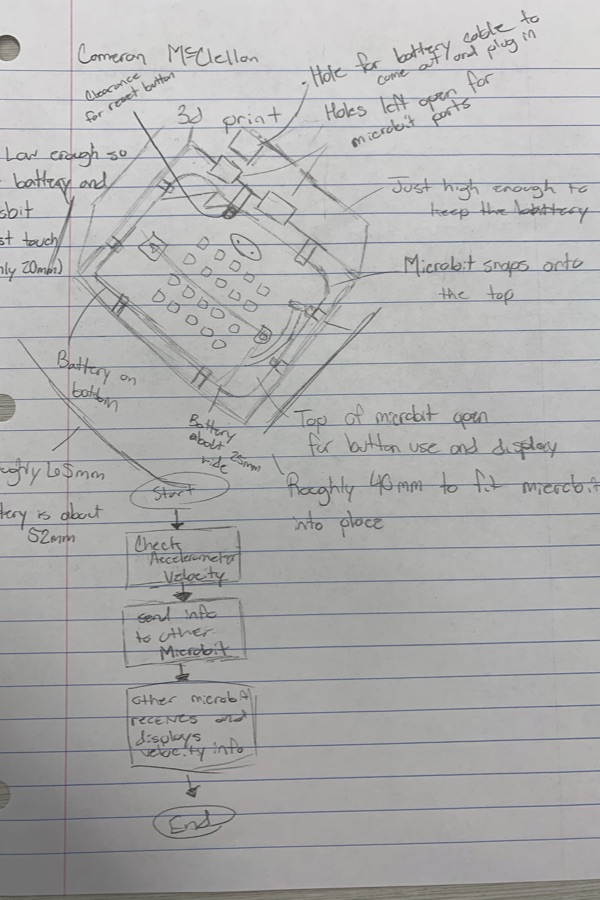 Cameron McClellan
Clearance
for reset button
3d print
- Hole for battery cable to
come out and plug in
Holes left open for
microbit ports
Low enough so
battery and
touch
20mm)
Just high enough to
keep the battery
Microbit snaps onto
the top
Battery on
bottom
Battery
about 25mm
wide
Top of microbit open
for button use and display
Roughly 40mm to fit microbit
into place
65mm
is about
52mm
Start
Check
Accelerometer
Velocity
send info
to other
Microbit
other microbit
receives and
displays
velocity info
End